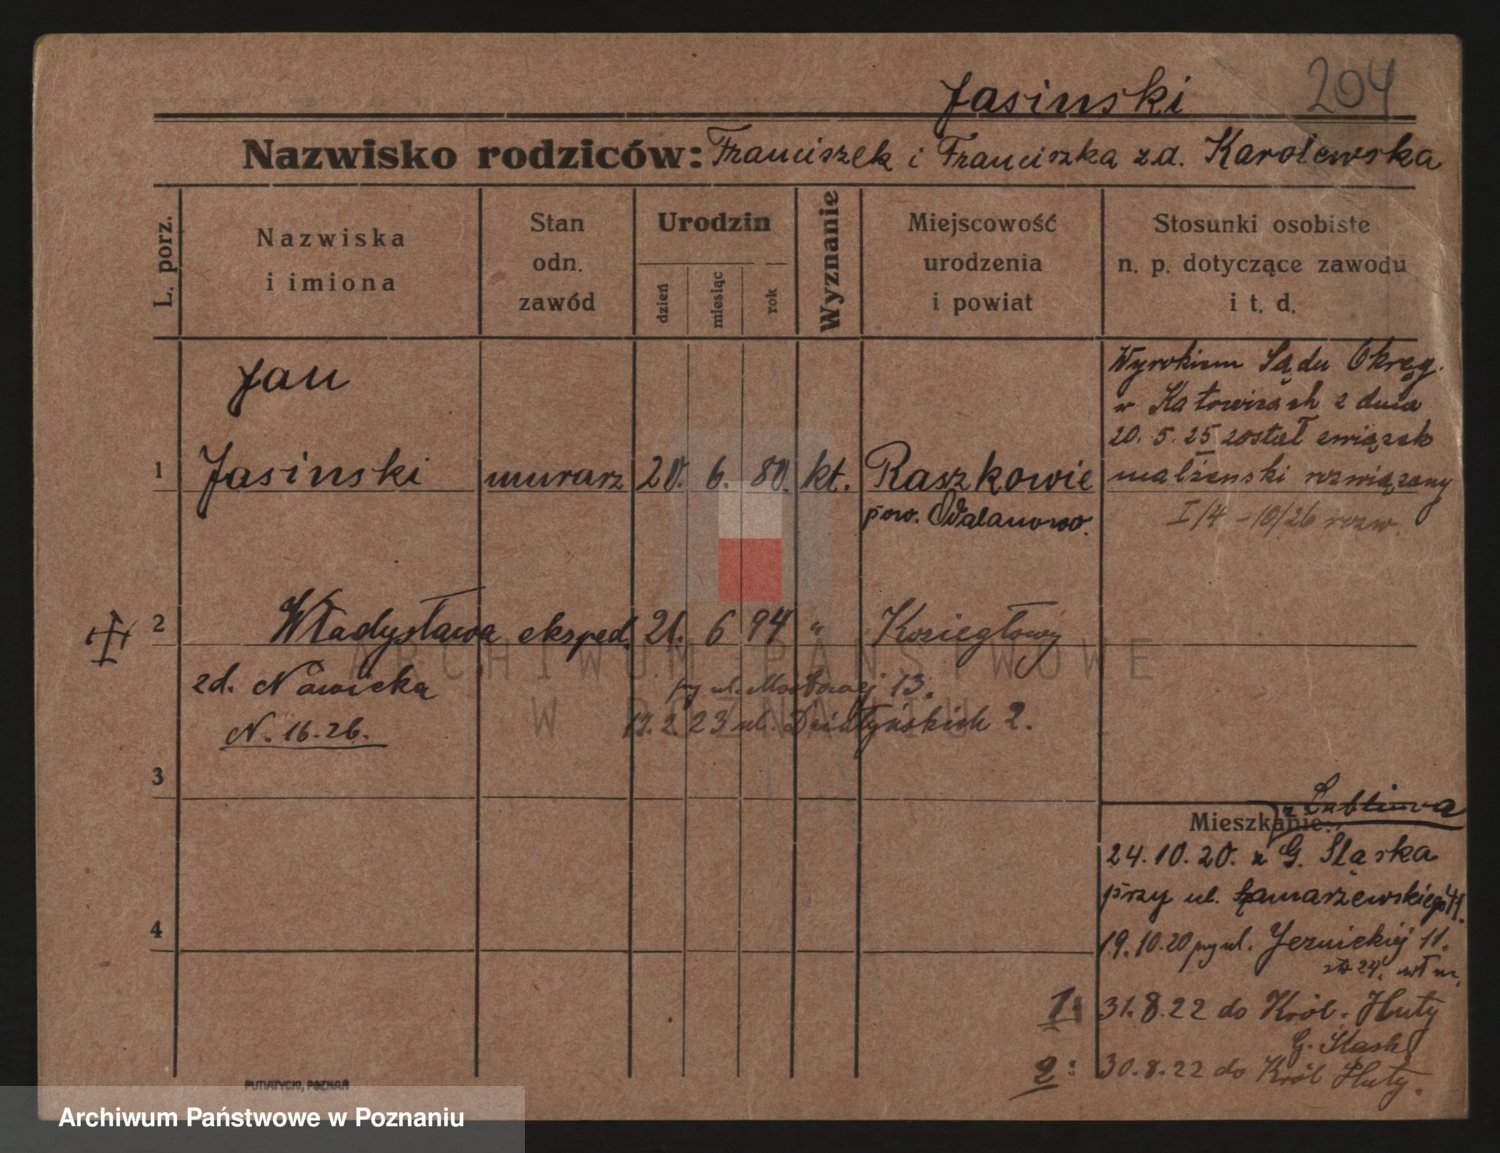 Jasinski 204
Nazwisko rodziców: Franciszek i Franciszka z d. Karolewska
L. porz.
Nazwiska
i imiona
Stan
odn.
zawód
Urodzin
dzień
miesiąc
rok
Wyznanie
Miejscowość
urodzenia
i powiat
Stosunki osobiste
n. p. dotyczące zawodu
i t. d.
Jan
1 Jasinski murarz 20. 6. 80. kt. Raszkowie
pow. Odalanowo.
Wyrokiem Sądu Okręg.
w Katowicach z dnia
20. 5. 25 został związek
małżenski rozwiązany
I/4 - 10/26 rozw.
2 Władysława eksped. 21. 6 94 " Koziegłowy
zd. Nowicka
przy ul. Mostowej 13.
N. 16.26.
19.2.23 ul. Działyńskich 2.
3
z Lublińca
Mieszkanie:
24.10.20. z G. Sląska
przy ul. Łamarzewskiego
4
19.10.20 przy ul. 11.
1: 31.8.22 do Król. Huty
G. Sląsk
2: 30.8.22 do Król Huty.
PUTIATYCKI, POZNAŃ
ARCHIWUM PAŃSTWOWE
W POZNANIU
Archiwum Państwowe w Poznaniu